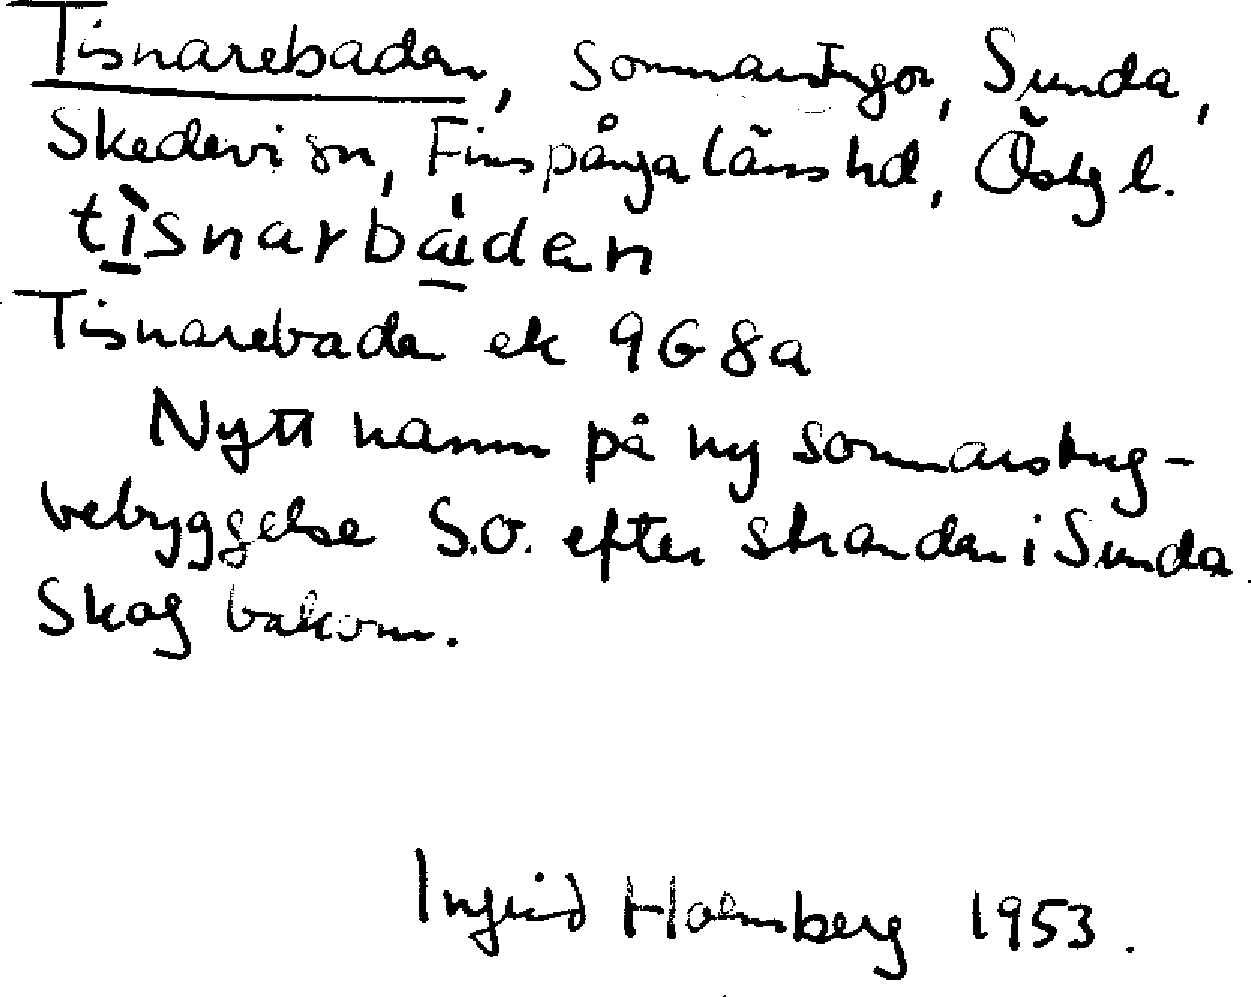 Tisnarebaden, Sommarstugor, Sunda,
Skedevi sn, Finspånga läns hd, Östg l.
tìsnarbáden
Tisnarebaden ek 9G8a
Nytt namn på ny sommarstug-
bebyggelse S.O. efter stranden i Sunda.
Skog bakom.
Ingrid Holmberg 1953.